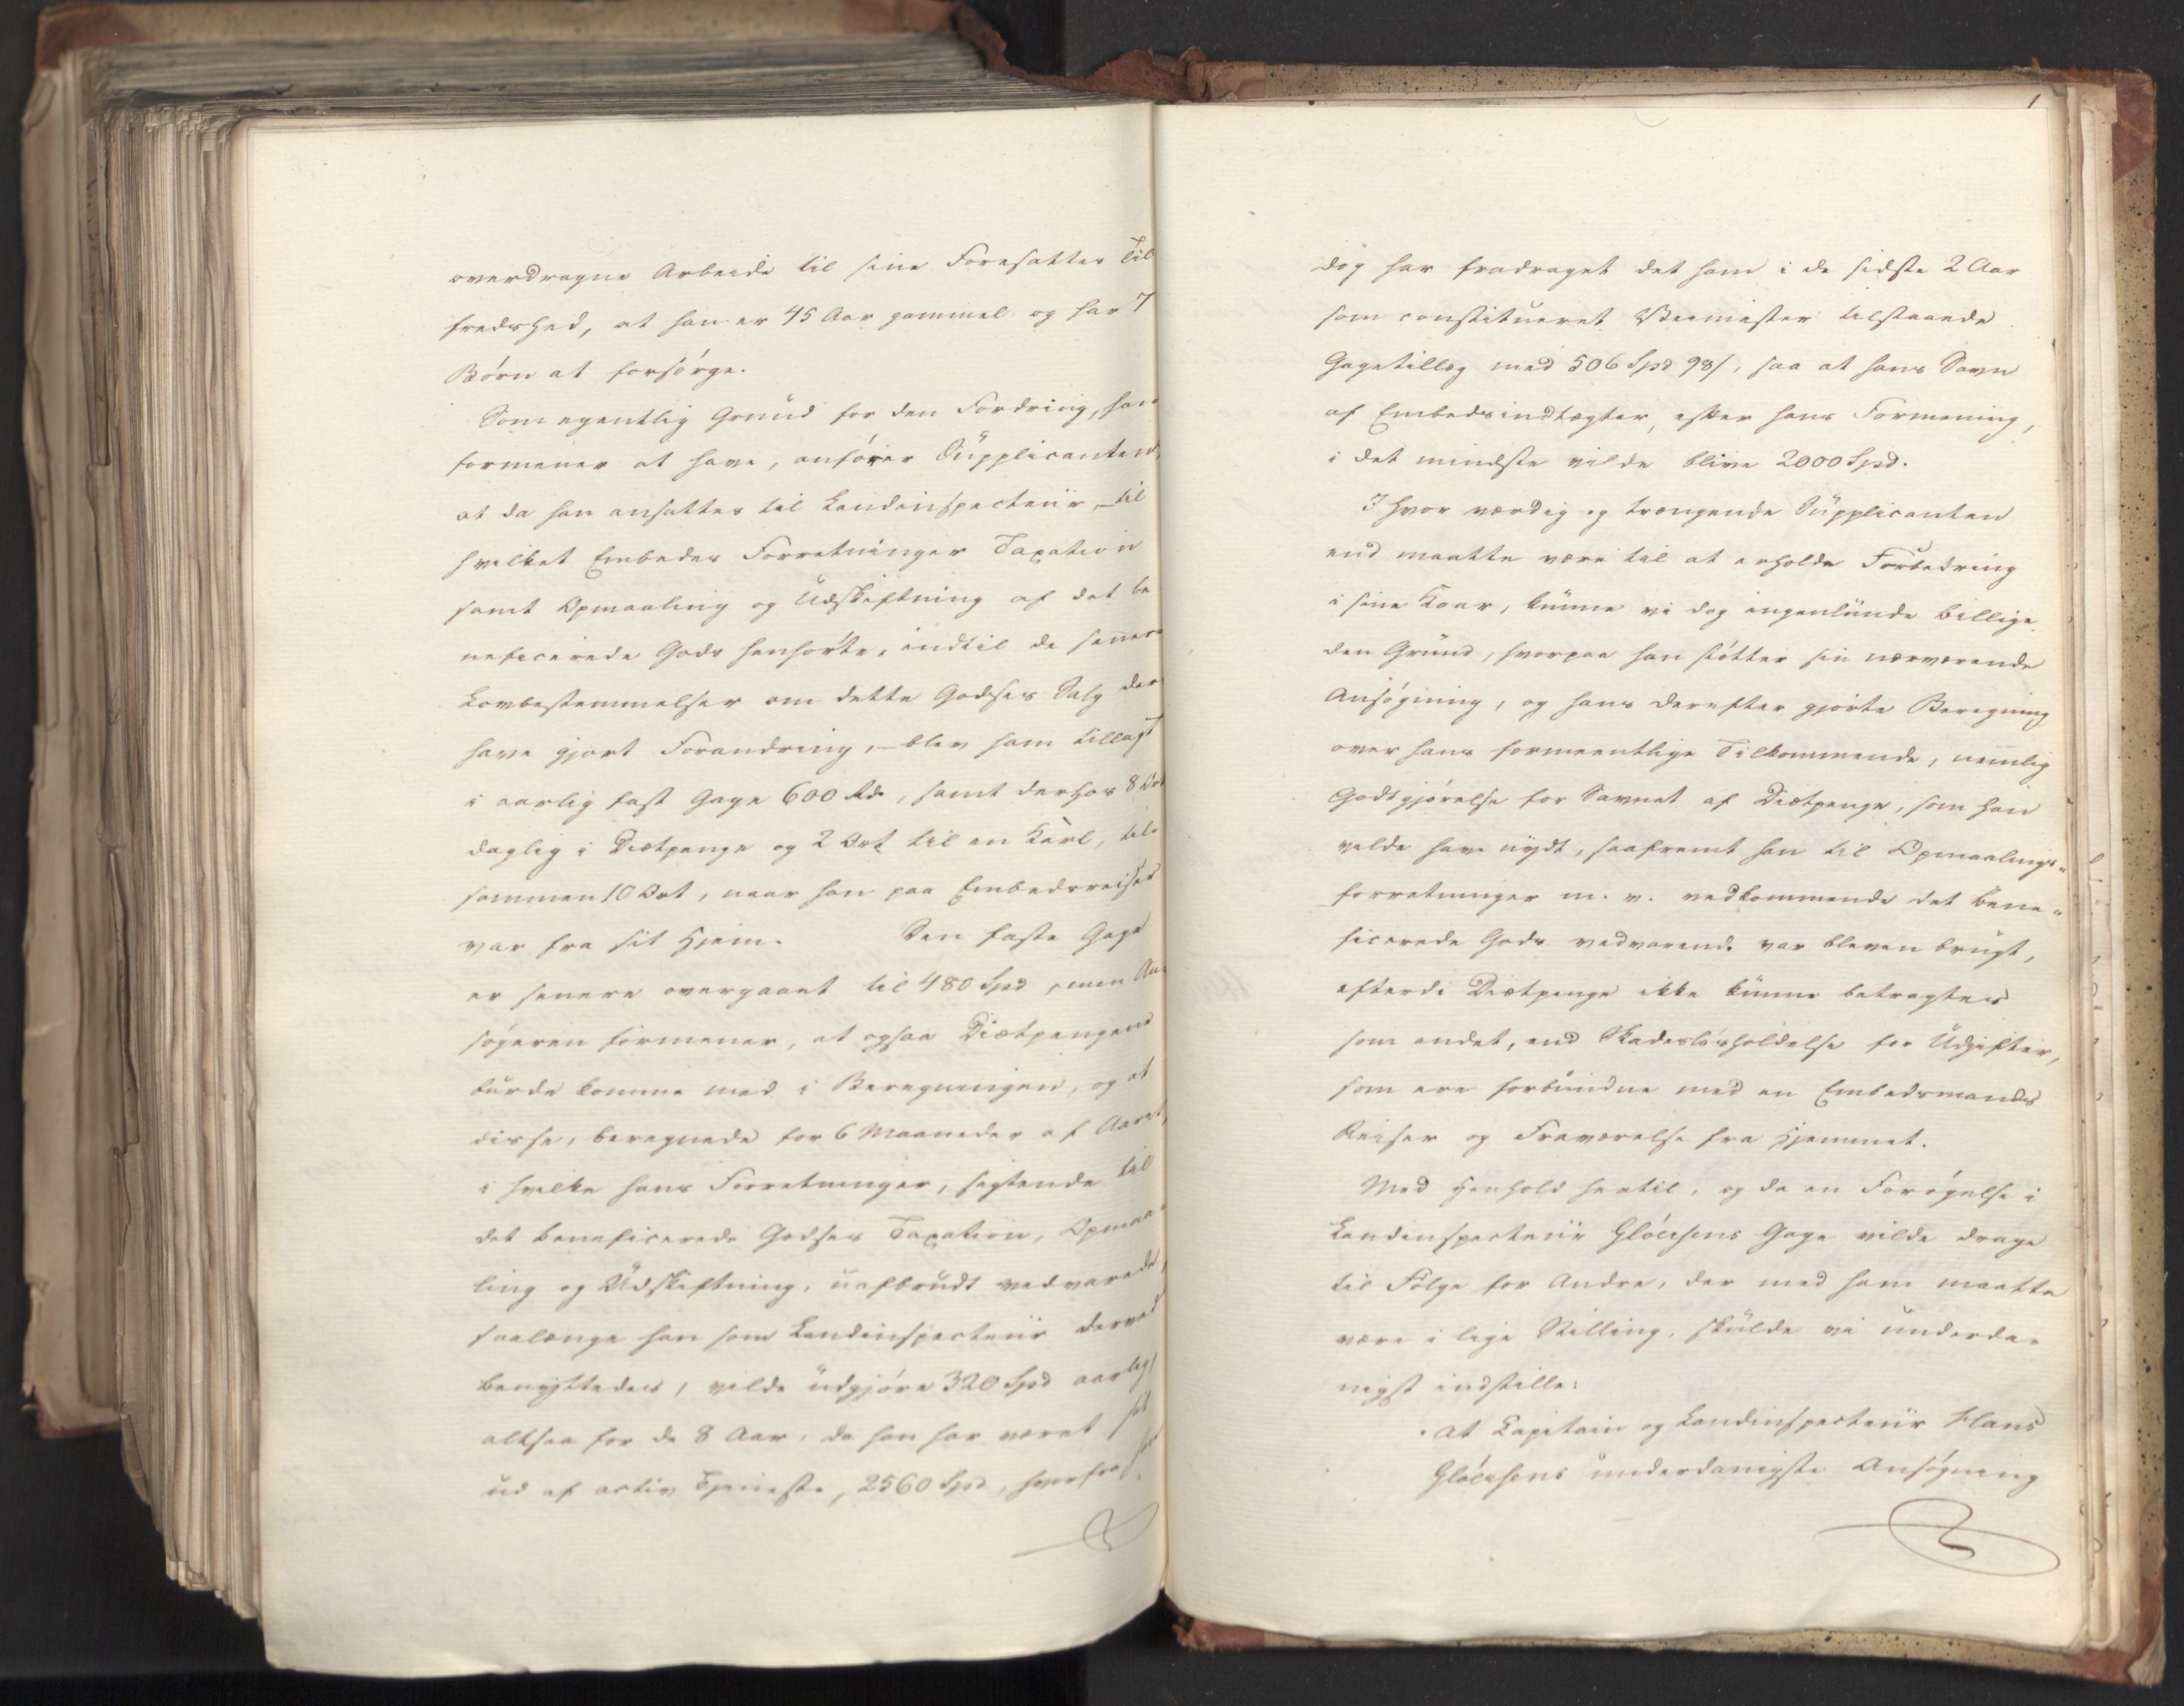 overdragne Arbeide til sine Foresattes Til
fredshed, at han er 45 Aar gammel og har 7
Börn at forsörge.
Som egentlig Grund for den Fordring, han
formener at have, anförer Supplicanten,
at da han ansattes til Landinspecteur, – til
hvilket Embedes Forretninger Taxation
samt Opmaaling og Udskiftning af det be
neficerede Gods henhörte, indtil de senere
Lovbestemmelser om dette Godses Salg der
have gjort Forandring, – blev ham tillagt
i aarlig fast Gage 600 Rd, samt derhos 8 Ort
daglig i Diætpenge og 2 Ort til en Karl, til
sammen 10 Ort, naar han paa Embedsreiser
var fra sit Hjem. Den faste Gage
er senere overgaaet til 480 Spd, men An
sögeren formener, at ogsaa Diætpengene
burde komme med i Beregningen, og at
disse, beregnede for 6 Maaneder af Aaret,
i hvilke hans Forretninger, sigtende til
det beneficerede Godses Taxation, Opmaa
ling og Udskiftning, uafbrudt vedvarede,
saalænge han som Landinspecteur derved
benyttedes, vilde udgjöre 320 Spd aarlig,
altsaa for de 8 Aar, da han har været sat
ud af activ Tjeneste, 2560 Spd, hvorfra han
1
dog har fradraget det ham i de sidste 2 Aar
som constitueret Veimester tilstaaede
Gagetillæg med 506 Spd 98/, saa at hans Savn
af Embedsindtægter, efter hans Formening,
i det mindste vilde blive 2000 Spd.
I hvor værdig og trængende Supplicanten
end maatte være til at erholde Forbedring
i sine Kaar, kunne vi dog ingenlunde billige
den Grund, hvorpaa han stötter sin nærværende
Ansögning, og hans derefter gjorte Beregning
over hans formeentlige Tilkommende, nemlig
Godtgjörelse for Savnet af Diætpenge, som han
vilde have nydt, saafremt han til Opmaalings-
forretninger m. v. vedkommende det bene-
ficerede Gods vedvarende var bleven brugt,
efterdi Diætpenge ikke kunne betragtes
som andet, end Skadeslösholdelse for Udgifter,
som ere forbundne med en Embedsmands
Reiser og Fraværelse fra Hjemmet.
Med Henhold hertil, og da en Forögelse i
Landinspecteur Glöersens Gage vilde drage
til Fölge for Andre, der med ham maatte
være i lige Stilling, skulde vi underda-
nigst indstille:
at Capitain og Landinspecteur Hans
Glöersens underdanigste Ansögning